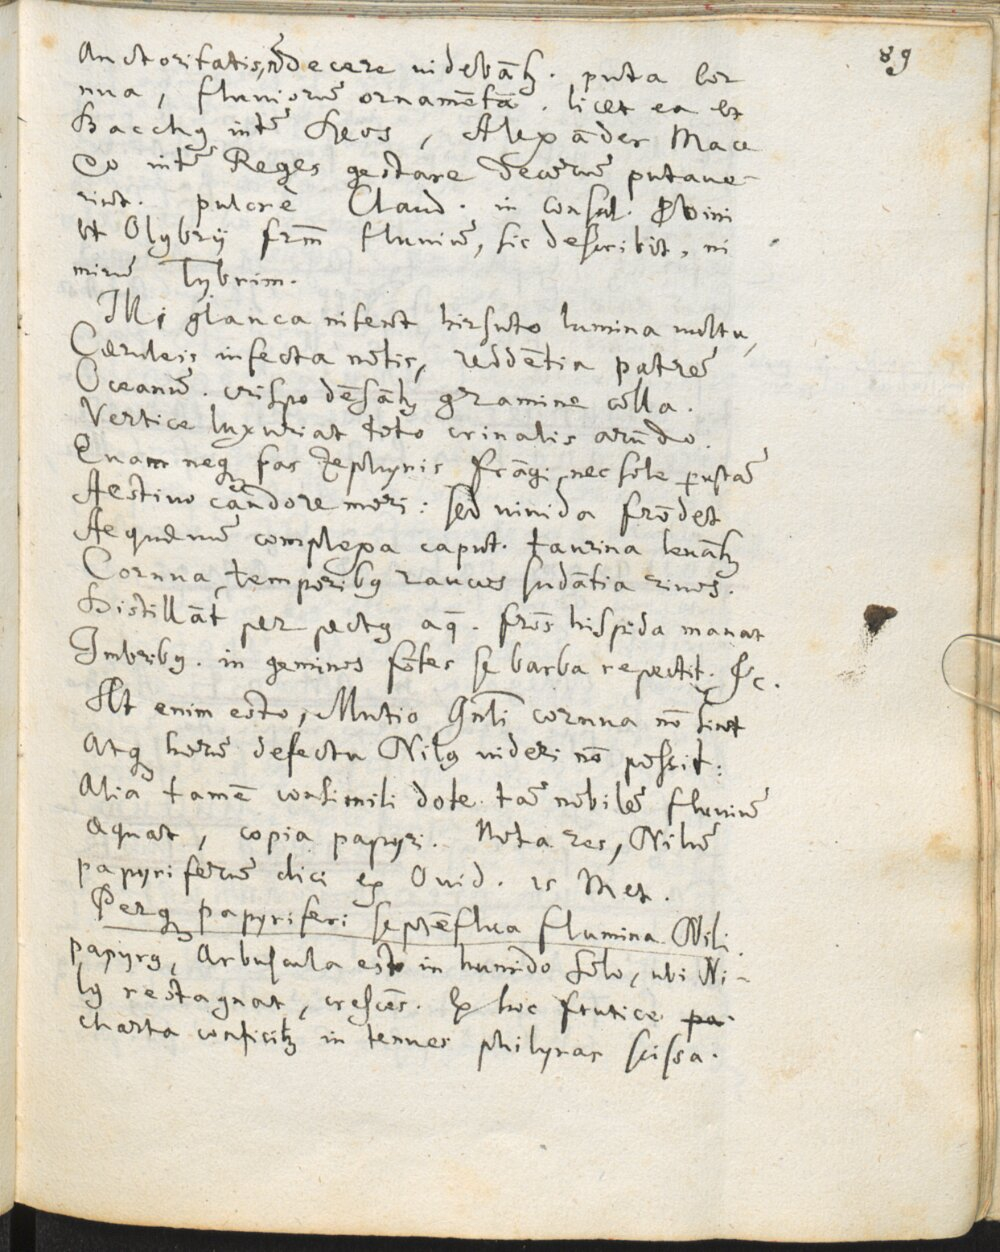 89
Auctoritatis, nō decere uidebātʒ. puta Cor
nua, fluuiorū ornamēta. licet ea et
Bacchꝯ intē Heros, Alexāder Mace
do intē Reges gestare decorū putaue-
rint. pulcrè Claud. in Consul. Probini
et Olybrij frm̄ fluuiū, sic describit, ni
mirū Tybrim.
Illi glauca nitent hirsuto lumina multu,
Cæruleis infecta notis, reddētia patrē
Oceanū. crispo dēsātʒ gramine colla.
Vertice luxuriat toto crinalis arūdo.
Quam neqꝫ fas Zephyris frāgi, nec sole ꝑustā
Aestiuo candore mori: sed uiuida frōdet
Aequæuū complexa caput. taurina leuātʒ
Cornua temporibꝯ raucos sudātia riuos.
Distillāt per pectꝯ aq̄. frōs hispida manat
Imbribꝯ. in geminos fōtes se barba repectit. &c.
At enim esto, Mutio Iuli cornua nō sint
Atqꝫ horū defectu Nilꝯ uideri nō possit:
Alia tamē consimili dote tā nobilē fluuiū
aquat, copia papyri. Nota res, Nilū
papyriferū dici ex Ouid. 15 Met.
Perqꝫ papyriferi septēflua flumina Nili
papyrꝯ, Arbuscula est in humido solo, ubi Ni-
lꝯ restagnat, crescēs. Ex hoc frutice pa.
charta conficitʒ in tenues philyras scissa.